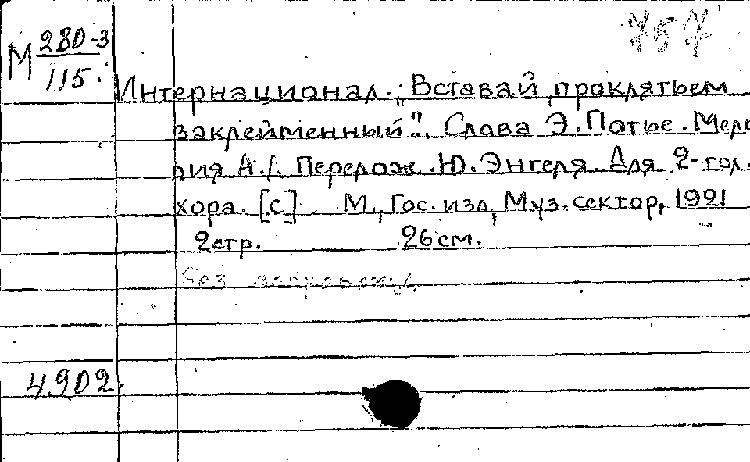 757
М 280-3
115.
Интернационал. „Вставай, проклятьем
заклейменный". Слова Э. Потье. Мело
дия А./. Перелож. Ю. Энгеля. Для 2-гол.
хора. [с.] М., Гос. изд, Муз. сектор, 1921
2стр. 26см.
Без
4.902.